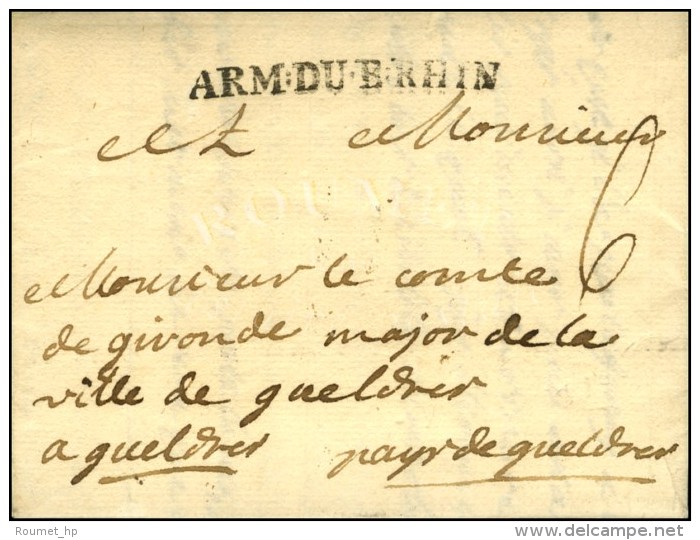 ARM·DU·B·RHIN
A Monsieur
Monsieur le comte
de gironde major de la
ville de gueldres
a gueldres pays de gueldres
Roumet_hp
delcampe.net